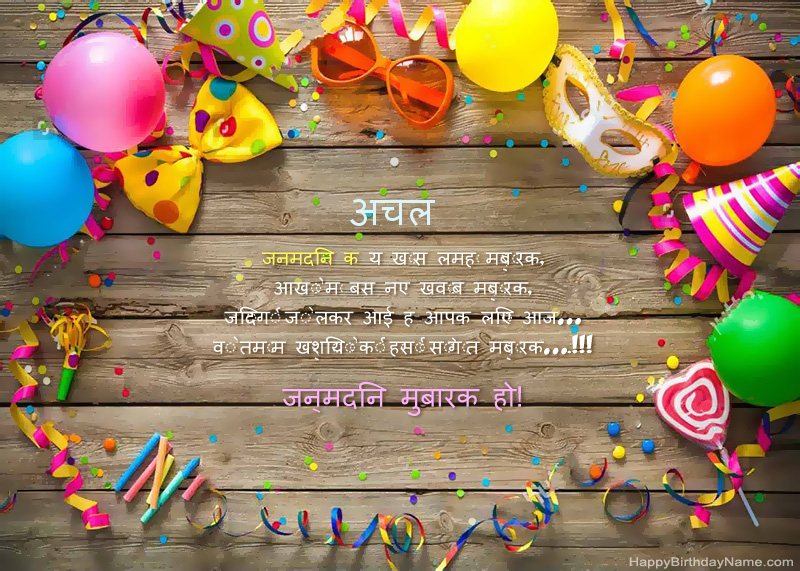 अचल
जनमदिन क य खास लमह मबारक,
आखों में बस नए खवाब मबारक,
जिंदगी जो लेकर आई ह आपक लिए आज...
वो तमाम खुशियों की हसीं सौगात मबारक....!!!
जन्मदिन मुबारक हो!
HappyBirthdayName.com